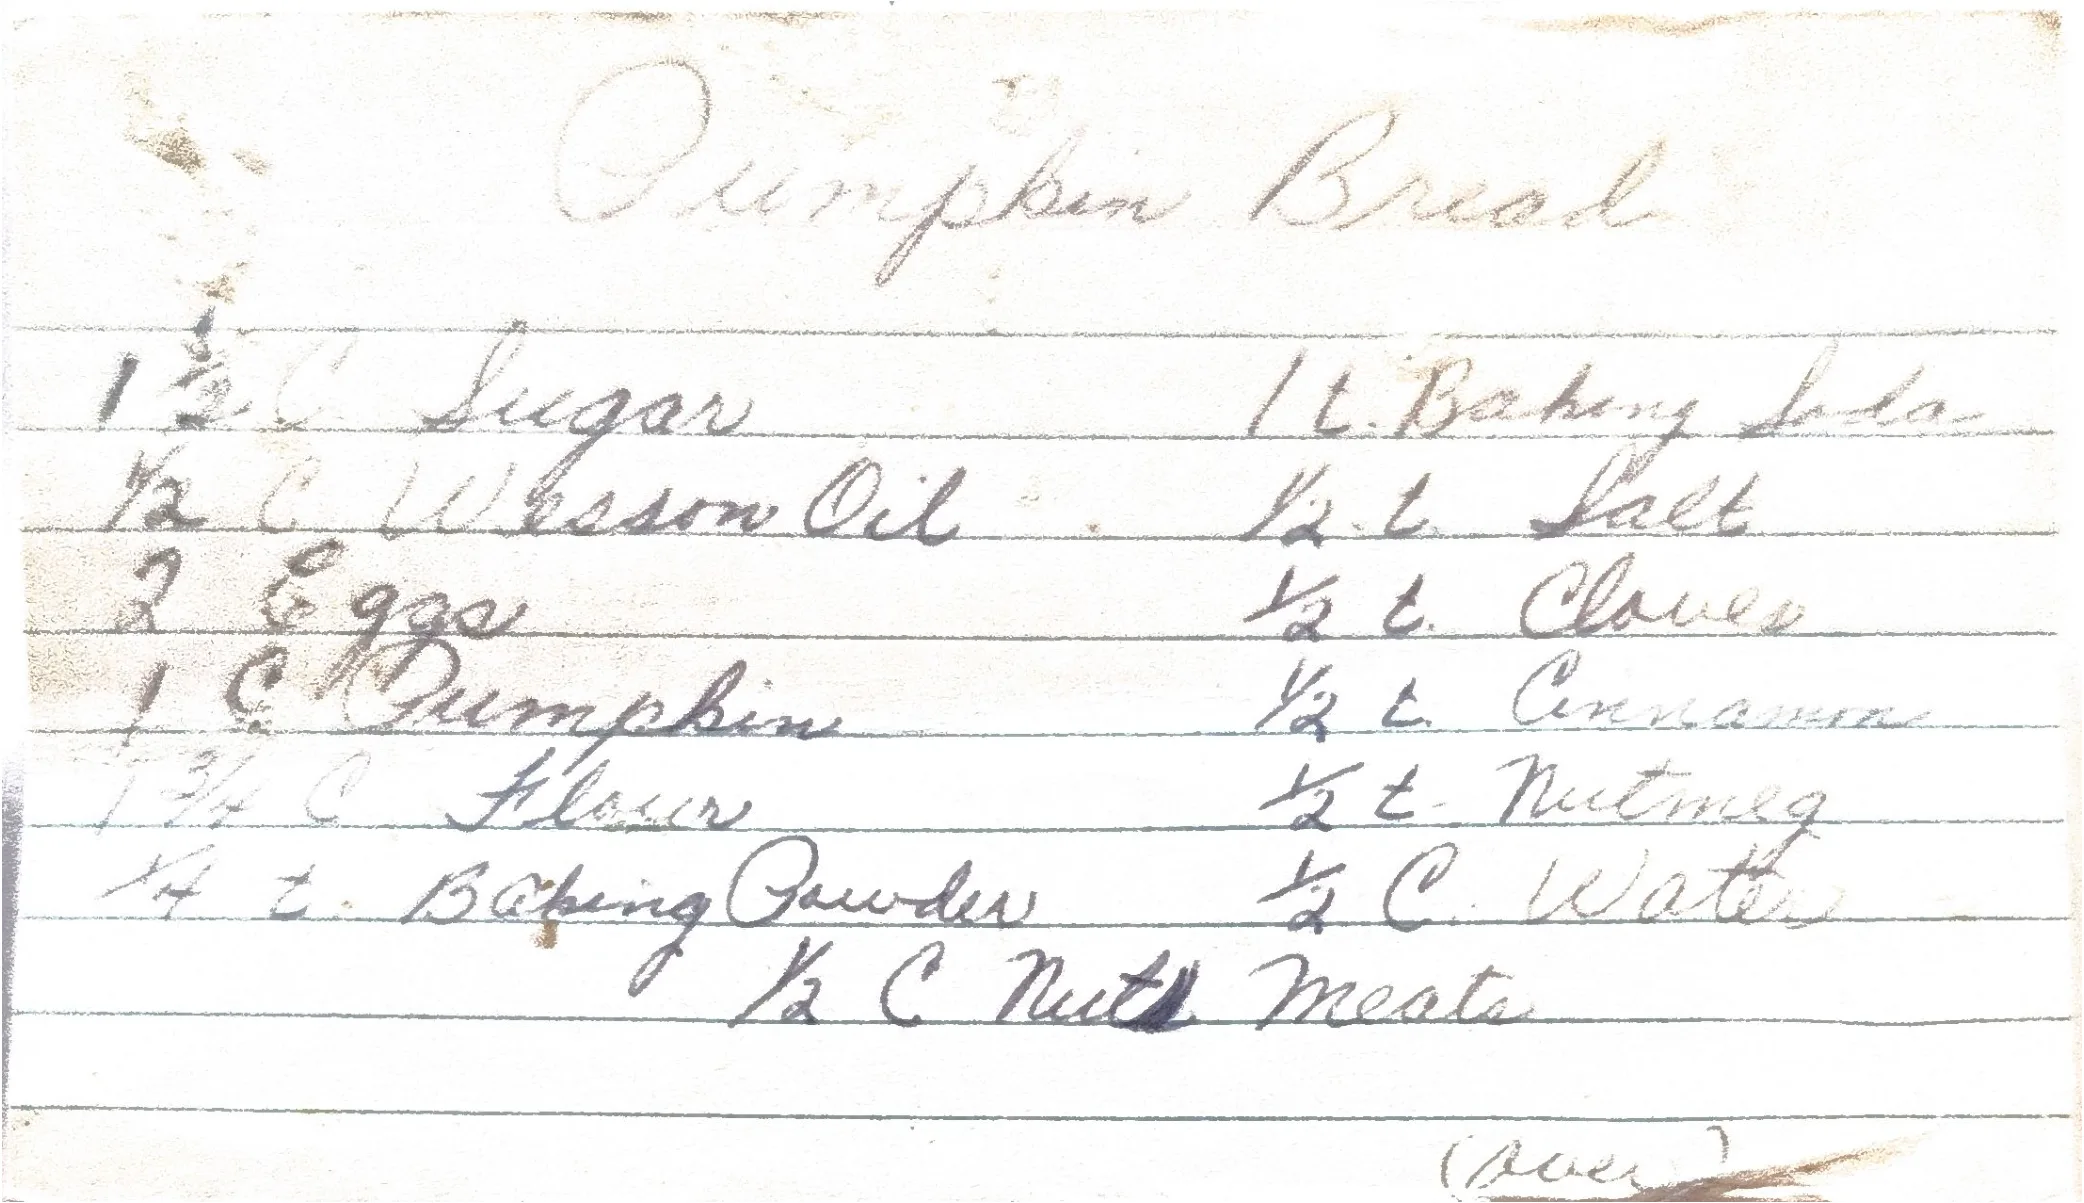 Pumpkin Bread
1 1/2 C Sugar 1 t. Baking Soda
1/2 C Wesson Oil 1/2 t. Salt
2 Eggs 1/2 t. Cloves
1 C Pumpkin 1/2 t. Cinnamon
1 3/4 C Flour 1/2 t. Nutmeg
1/4 t. Baking Powder 1/2 C. Water
1/2 C Nut Meats
(over)